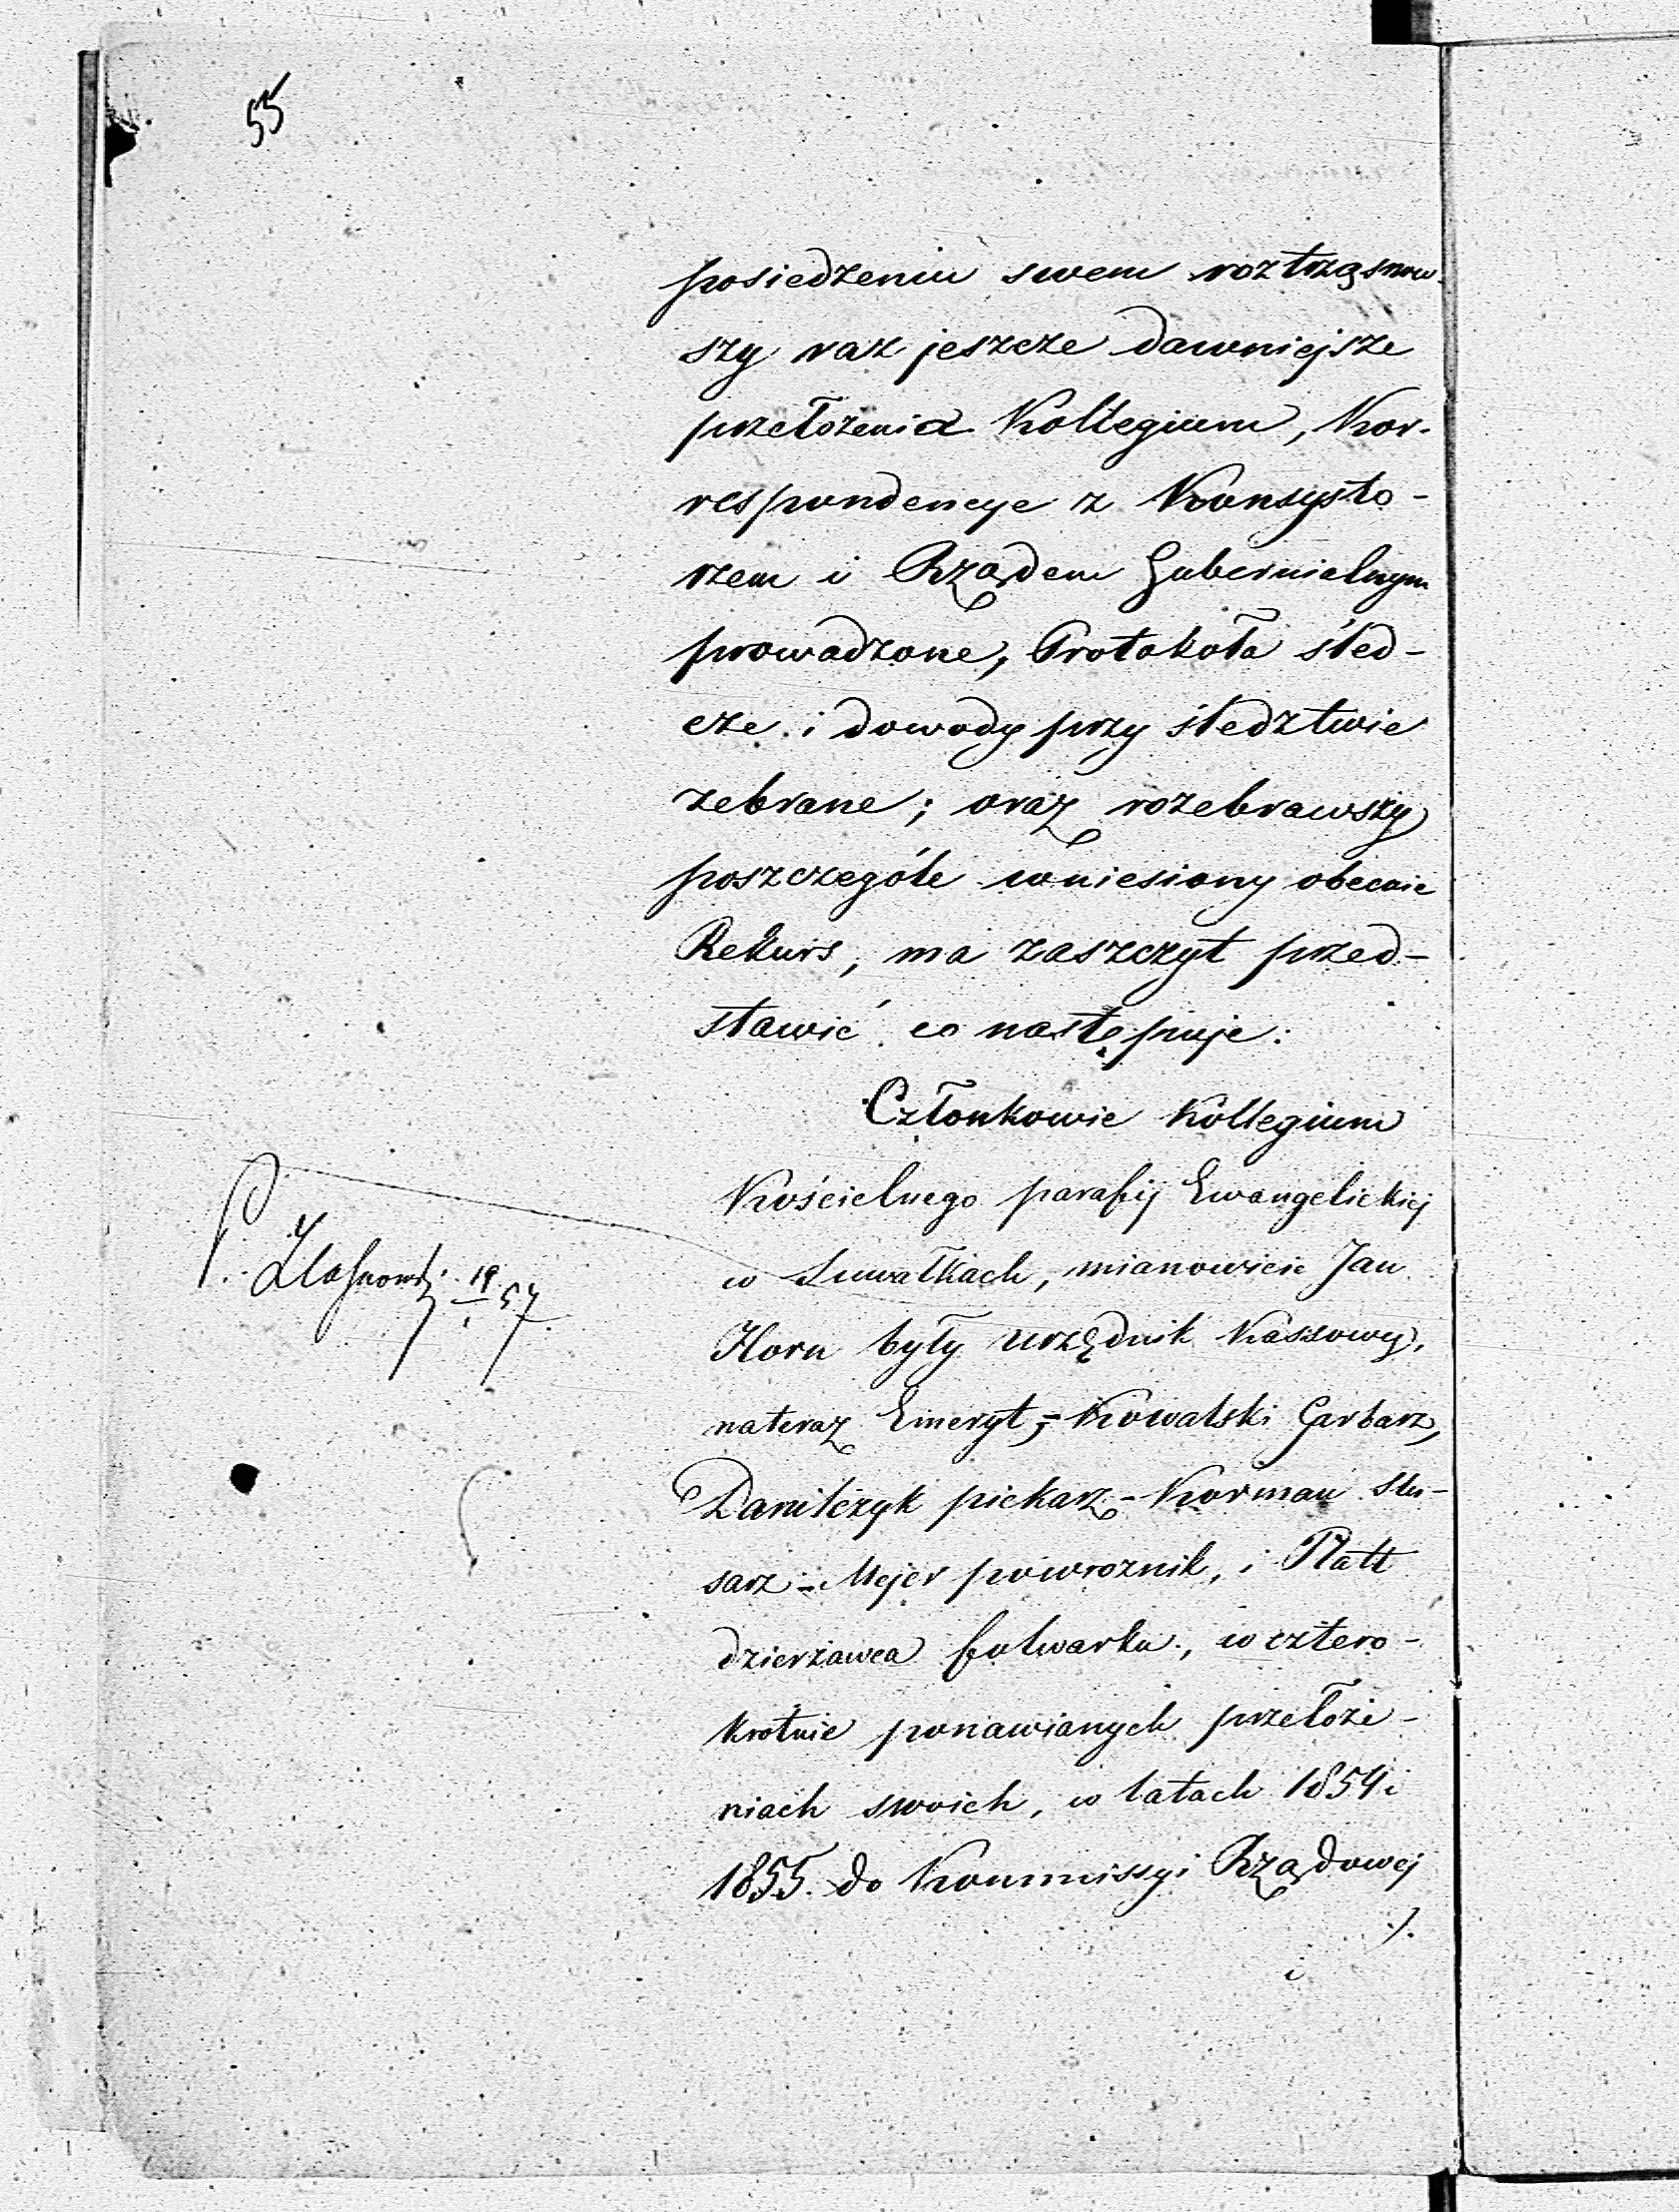 55
posiedzeniu swem roztrząsnąw-
szy raz jeszcze dawniejsze
przełożenia Kollegium, Kor-
respondencye z Konsysto-
rzem i Rządem Gubernialnym
prowadzone, Protokoła śled-
cze i dowody przy śledztwie
zebrane; oraz rozebrawszy
poszczególe wniesiony obecnie
Rekurs, ma zaszczyt przed-
stawić co następuje:
Członkowie Kollegium
Kościelnego parafij Ewangelickiej
w Suwałkach, mianowicie Jan
Horn były urzędnik Kassowy,
nateraz Emeryt,- Kowalski Garbarz,
Danilczyk piekarz - Korman Ślu-
sarz - Mejer powroznik, i Platt
dzierżawca folwarku, w cztero-
krotnie ponawianych przełoże-
niach swoich, w latach 1854 i
1855. do Kommissyi Rządowej
./.
19 57